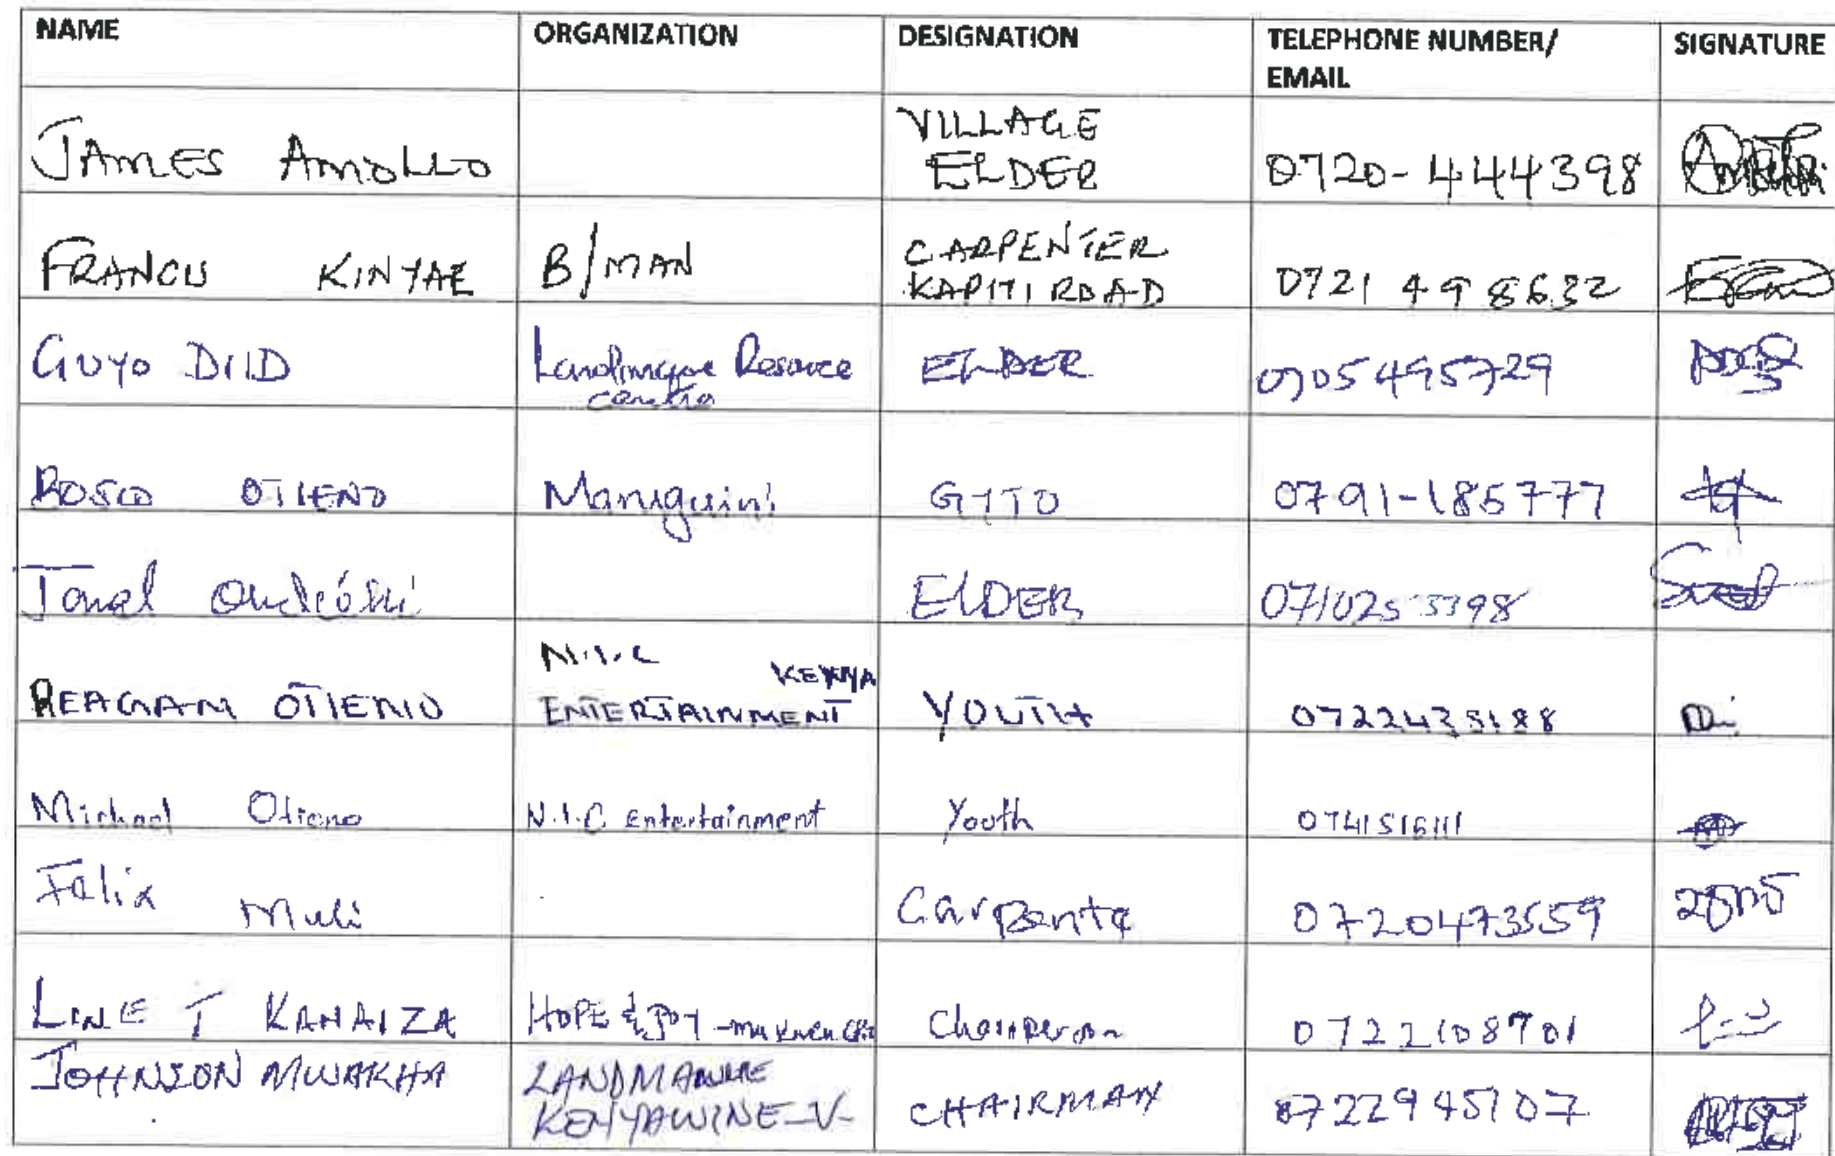 NAME ORGANIZATION DESIGNATION TELEPHONE NUMBER/ EMAIL SIGNATURE
JAMES AMOLLO VILLAGE ELDER 0720-444398
FRANCIS KINYAE B/MAN CARPENTER KAPITI ROAD 0721 498632
GUYO DIID Resource centre ELDER 0705495729
BOSCO OTIENO GITO 0791-185777
ELDER
REAGAN OTIENO N.I.C KENYA ENTERTAINMENT YOUTH
Michael Otieno N.I.C Entertainment Youth 0741516111
Felix Muli Carpente 0720473559
KANAIZA HOPE & JOY Chairperson 0722108701
JOHNSON MWAKHA CHAIRMAN 0722945107